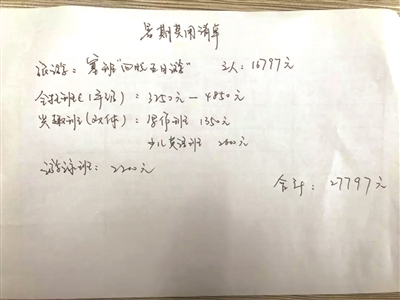 暑期费用清单
旅游：塞班“四晚五日游” 三人：16797元
全托班（1年级）：3250元—4850元
兴趣班（2件）：写作班 1350元
少儿英语班 2600元
游泳班：2200元
合计：27797元